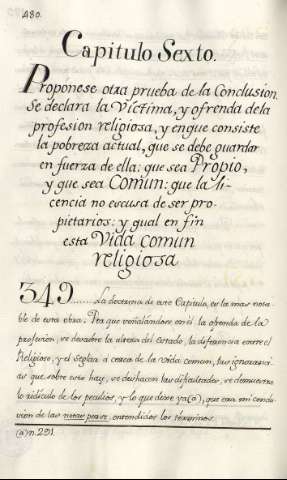 480.
Capitulo Sexto.
Proponese otra prueba de la Conclusion.
Se declara la Victima, y ofrenda dela
profesion religiosa, y enque consiste
la pobreza actual, que se debe guardar
en fuerza de ella: que sea Propio,
y que sea Comun: que la li-
cencia no escusa de ser pro-
pietarios: y qual en fin
esta Vida comun
religiosa
349...... La doctrina de este Capitulo, es la mas nota-
ble de esta obra. Por que señalandose en él la ofrenda de la
profesion, se descubre la alteza del estado, la diferencia entre el
Religioso, y el Seglar à cerca de la vida comun, las ignoranci-
as que sobre esto hay, se deshacen las dificultades, se demuestra
lo ridiculo de los peculios, y lo que dixe ya (a), que era mi conclu-
sion de las notas prave, entendidos los terminos.
(a) n. 291.